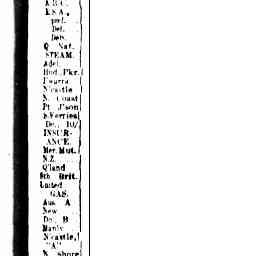 E.S.A.,
pref.
Def.
Defs.
Q. Nat.
STEAM.
Adel.
Hud. Pkr.
I'warra
N'castle
N. Coast
Pt J'son
S. Ferries
Do., 10/
INSUR-
ANCE.
Mer. Mut.
N.Z.
Q'land
Sth Brit.
United
GAS.
Aus. A
New
Do., B
Manly
N'castle,
"A"
N. Shore